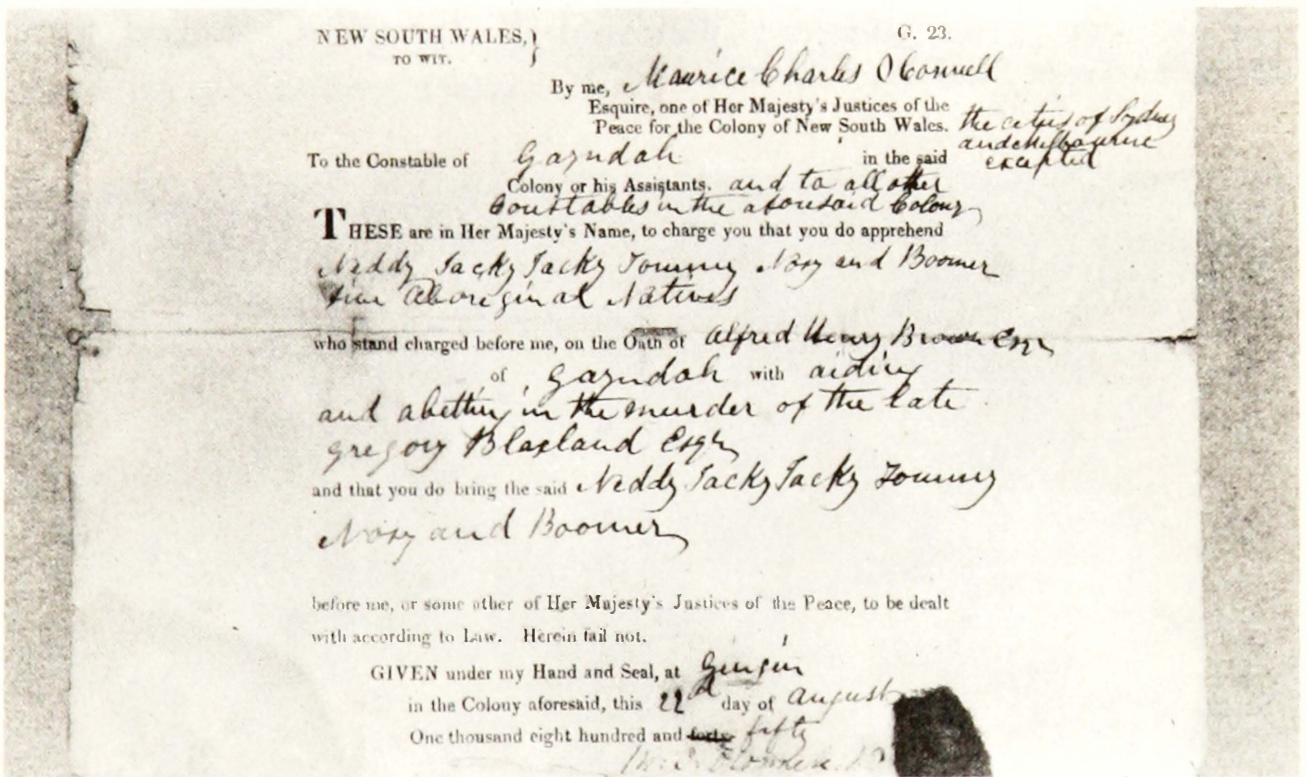 NEW SOUTH WALES,}
TO WIT.
G. 23.
By me, Maurice Charles O'Connell
Esquire, one of Her Majesty's Justices of the
Peace for the Colony of New South Wales. the cities of Sydney
and Melbourne
excepted
To the Constable of Gayndah in the said
Colony or his Assistants. and to all other
Constables in the aforesaid Colony
THESE are in Her Majesty's Name, to charge you that you do apprehend
Neddy Jacky Jacky Tommy Nosy and Boomer
five Aboriginal Natives
who stand charged before me, on the Oath of Alfred Henry Brown Esqr
of Gayndah with aiding
and abetting in the murder of the late
Gregory Blaxland Esqr
and that you do bring the said Neddy Jacky Jacky Tommy
Nosy and Boomer
before me, or some other of Her Majesty's Justices of the Peace, to be dealt
with according to Law. Herein fail not.
GIVEN under my Hand and Seal, at Gingin
in the Colony aforesaid, this 22d day of August
One thousand eight hundred and forty fifty